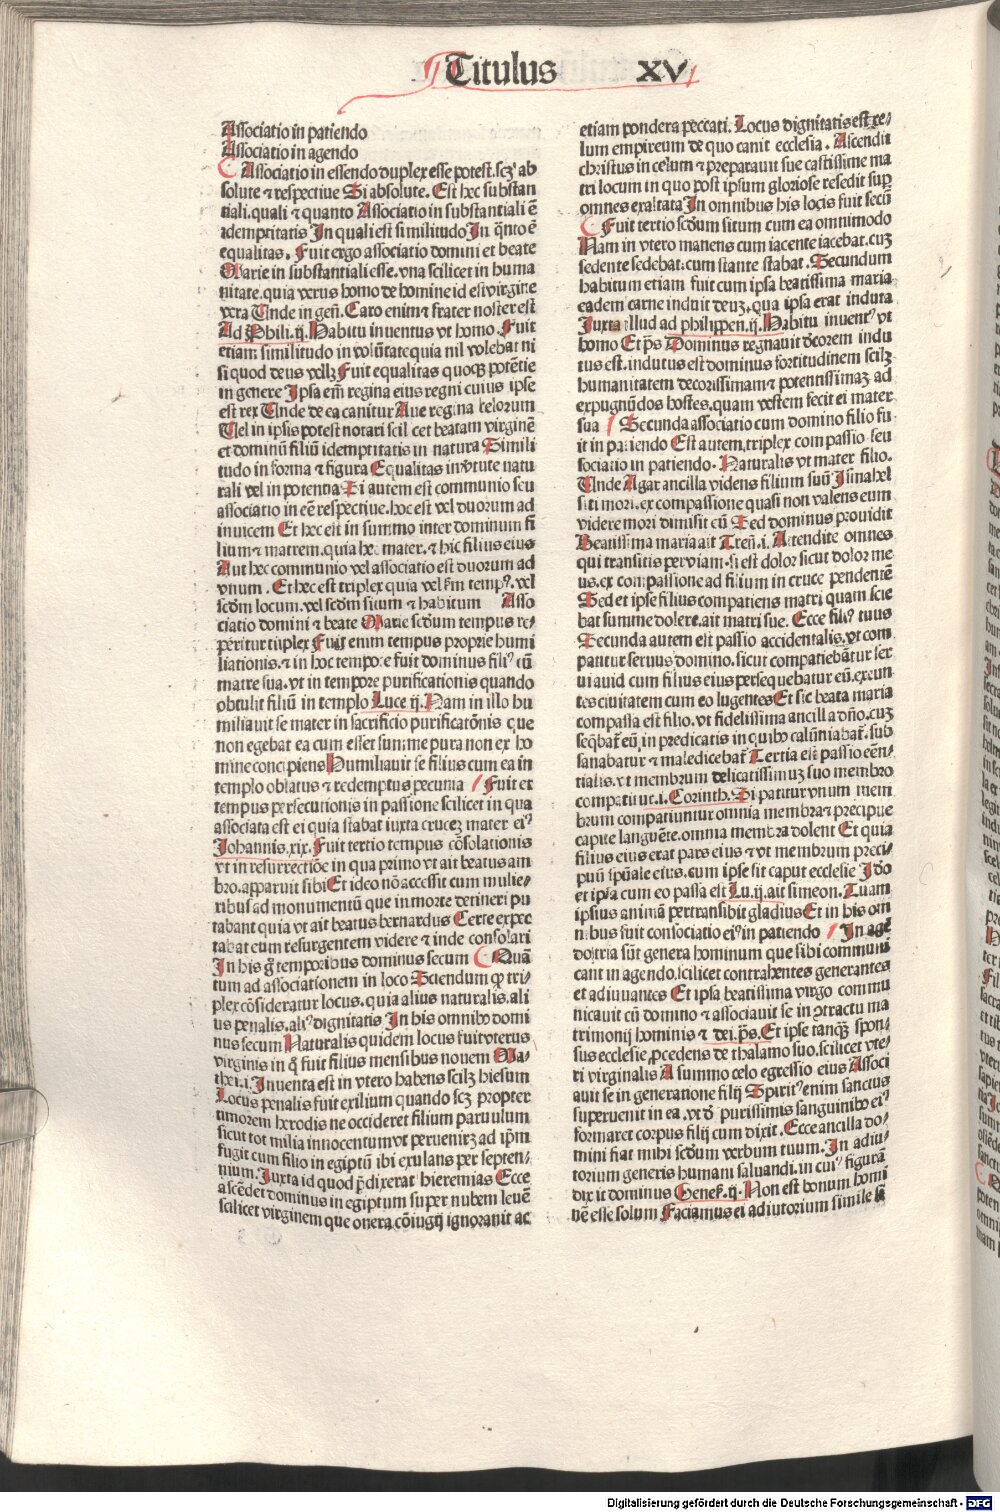 Titulus XV
Associatio in patiendo
Associatio in agendo
Associatio in essendo duplex esse potest. scꝫ ab
solute ⁊ respectiue Si absolute. Est hec substan
tiali. quali ⁊ quanto Associatio in substantiali ē
idemptitatis In quali est similitudo In q̄nto ē
equalitas. Fuit ergo associatio domini et beate
Marie in substantiali esse. vna scilicet in huma
nitate. quia verus homo de homine id est virgine
vera Unde in geñ. Caro enim ⁊ frater noster est
Ad Phili. ij. Habitu inuentus vt homo. Fuit
etiam similitudo in volūtate quia nil volebat ni
si quod deus vellꝫ Fuit equalitas quoqꝫ potētie
in genere Ipsa em̄ regina eius regni cuius ipse
est rex Unde de ea canitur Aue regina celorum
Uel in ipsis potest notari scilicet beatam virginē
et dominū filiū idemptitatis in natura Simili
tudo in forma ⁊ figura Equalitas in v̄tute natu
rali vel in potentia Si autem est communio seu
associatio in eē respectiue. hoc est vel duorum ad
inuicem Et hec est in summo inter dominum fi
lium ⁊ matrem. quia hec mater. ⁊ hic filius eius
Aut hec communio vel associatio est duorum ad
vnum. Et hec est triplex quia vel scd̄m tempꝰ. vel
scd̄m locum. vel scd̄m situm ⁊ habitum Asso
ciatio domini ⁊ beate Marie scd̄um tempus re/
peritur triplex Fuit enim tempus proprie humi
liationis. ⁊ in hoc tempore fuit dominus filiꝰ cū
matre sua. vt in tempore purificationis quando
obtulit filiū in templo Luce ij. Nam in illo hu
miliauit se mater in sacrificio purificatōnis que
non egebat ea cum esset summe pura non ex ho
mine concipiens Humiliauit se filius cum ea in
templo oblatus ⁊ redemptus pecunia Fuit et
tempus persecutionis in passione scilicet in qua
associata est ei quia stabat iuxta cruceꝫ mater eiꝰ
Johannis. xix. Fuit tertio tempus cōsolationis
vt in resurrectiōe in qua primo vt ait beatus am
bro. apparuit sibi Et ideo nō accessit cum mulie/
ribus ad monumentū que in morte detineri pu
tabant quia vt ait beatus bernardus Certe expec
tabat eum resurgentem videre ⁊ inde consolari
In his g̊ temporibus dominus secum Quā
tum ad associationem in loco Sciendum ꝙ tri/
plex cōsideratur locus. quia alius naturalis. ali
us penalis. aliꝰ dignitatis In his omnibꝰ domi
nus secum Naturalis quidem locus fuit vterus
virginis in q̊ fuit filius mensibus nouem Ma/
thei. i. Inuenta est in vtero habens scilꝫ hiesum
Locus penalis fuit exilium quando scꝫ propter
timorem herodis ne occideret filium paruulum
sicut tot milia innocentum vt perueniꝫ ad ip̄m
fugit cum filio in egiptū ibi exulans per septen/
nium. Juxta id quod p̄dixerat hieremias Ecce
ascēdet dominus in egiptum super nubem leuē
scilicet virginem que onera cōiugij ignorauit ac
etiam pondera peccati. Locus dignitatis est ce/
lum empireum de quo canit ecclesia. Ascendit
christus in celum ⁊ preparauit sue castissime ma
tri locum in quo post ipsum gloriose resedit sup̄
omnes exaltata In omnibus his locis fuit secū
Fuit tertio scd̄um situm cum ea omnimodo
Nam in vtero manens cum iacente iacebat. cuꝫ
sedente sedebat: cum stante stabat. Secundum
habitum etiam fuit cum ipsa beatissima maria
eadem carne induit deuꝫ. qua ipsa erat induta
Juxta illud ad philippen. ij. Habitu inuentꝰ vt
homo Et p̄s Dominus regnauit dcōrem indu
tus est. indutus est dominus fortitudinem scilꝫ
humanitatem decorissimam ⁊ potentissimaꝫ ad
expugnūdos hostes. quam vestem fecit ei mater
sua Secunda associatio cum domino filio fu
it in patiendo Est autem. triplex compassio seu
sociatio in patiendo. Naturalis vt mater filio.
Unde Agar ancilla videns filium suū Ismahel
siti mori. ex compassione quasi non valens eum
videre mori dimisit eū Sed dominus prouidit
Beatissima maria ait Treñ. i. Attendite omnes
qui transitis per viam. si est dolor sicut dolor me
us. ex compassione ad filium in cruce pendentē
Sed et ipse filius compatiens matri quam scie
bat summe dolere. ait matri sue. Ecce filiꝰ tuus
Secunda autem est passio accidentalis. vt com
patitur seruus domino. sicut compatiebātur ser
ui auid cum filius eius persequebatur eū. exeun
tes ciuitatem cum eo lugentes Et sic beata maria
compassa est filio. vt fidelissima ancilla dn̄o. cuꝫ
seq̄bat᷑ eū. in predicatis in quibꝰ calūniabat᷑. sub
sanabatur ⁊ maledicebat᷑ Tertia est passio eēn/
tialis. vt membrum delicatissimuꝫ suo membro
compatitur. i. Corinth. Si patitur vnum mem
brum compatiuntur omnia membra ⁊ precipue
capite languēte. omnia membra dolent Et quia
filius eius erat pars eius ⁊ vt membrum preci/
puū sp̄uale eius. cum ipse sit caput ecclesie Ido
et ipsa cum eo passa est Lu. ij. ait simeon. Tuam
ipsius animā pertransibit gladius Et in his om
nibus fuit consociatio eiꝰ in patiendo In agē
do tria sūt genera hominum que sibi communi
cant in agendo. scilicet contrahentes generantes
et adiuuantes Et ipsa beatissima virgo commu
nicauit cū domino ⁊ associauit se in ꝯtractu ma
trimonij hominis ⁊ dei. p̄s. Et ipse tanqꝫ spon/
sus ecclesie. ꝓcedens de thalamo suo. scilicet vte/
ri virginalis A summo celo egressio eius Associ
auit se in generatione filij Spiritꝰ enim sanctus
superuenit in ea. vt d̄ purissimis sanguinibꝰ eiꝰ
formaret corpus filij cum dixit. Ecce ancilla do/
mini fiat mihi scd̄um verbum tuum. In adiu/
torium generis humani saluandi. in cuiꝰ figurā
dixit dominus Genes. ij. Non est bonum homi
nē esse solum Faciamus ei adiutorium simile si
Digitalisierung gefördert durch die Deutsche Forschungsgemeinschaft - DFG